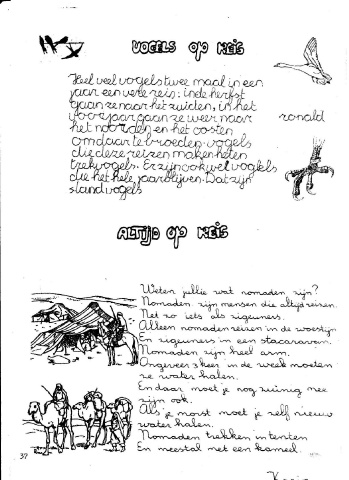 VOGELS OP REIS
Heel veel vogels twee maal in een
jaar een verre reis: in de herfst
gaan ze naar het zuiden, in het
voorjaar gaan ze weer naar
het noorden en het oosten
om daar te broeden. vogels
die deze reizen maken heten
trekvogels. Er zijn ook wel vogels
die het hele jaar blijven. Dat zijn
stand vogels
ronald
ALTIJD OP REIS
Weten jullie wat nomaden zijn?
Nomaden zijn mensen die altijd reizen.
Net zo iets als zigeuners.
Alleen nomaden reizen in de woestijn
En zigeuners in een stacaravan.
Nomaden zijn heel arm.
Ongeveer 3 keer in de week moeten
ze water halen.
En daar moet je nog zuinig mee
zijn ook.
Als je morst moet je zelf nieuw
water halen.
Nomaden trekken in tenten
En meestal met een kameel.
37